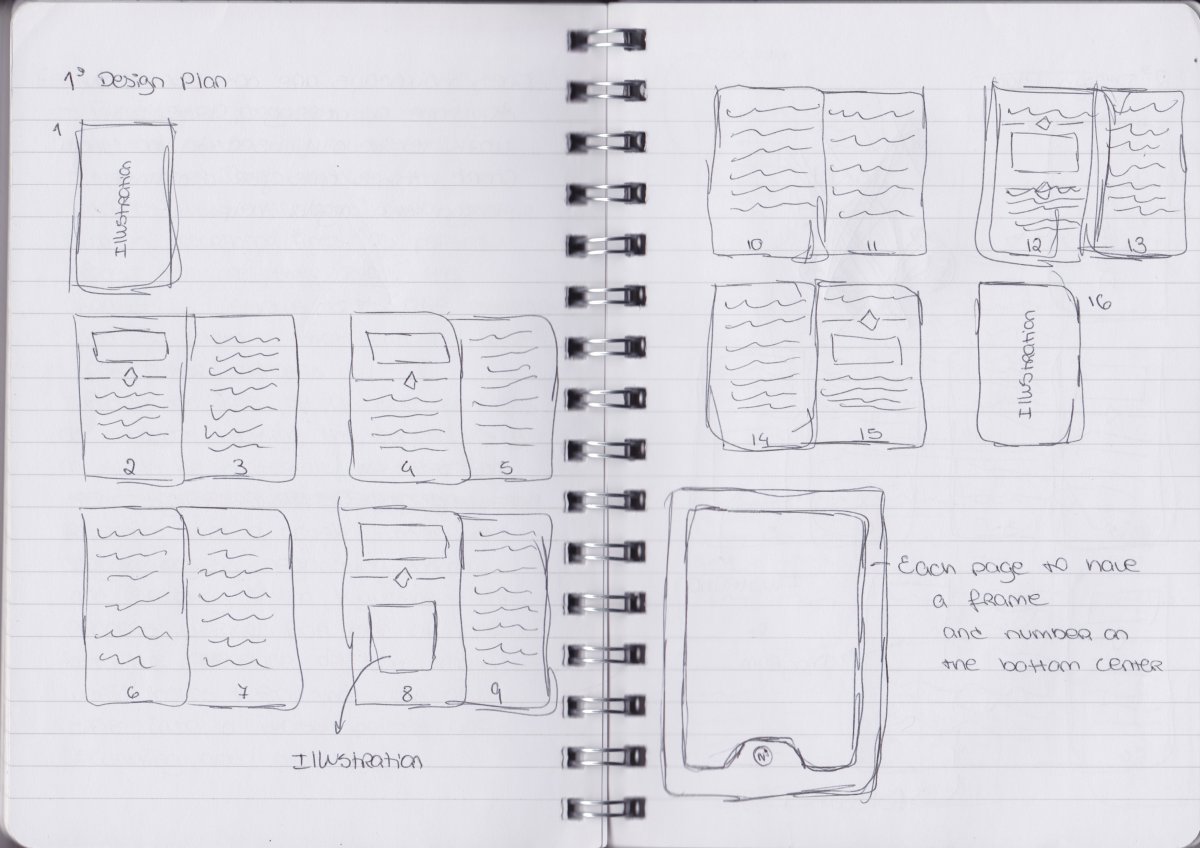 1º Design Plan
1
Illustration
2
3
4
5
6
7
8
9
Illustration
10
11
12
13
14
15
Illustration
16
Each page to have
a frame
and number on
the bottom center
Nº